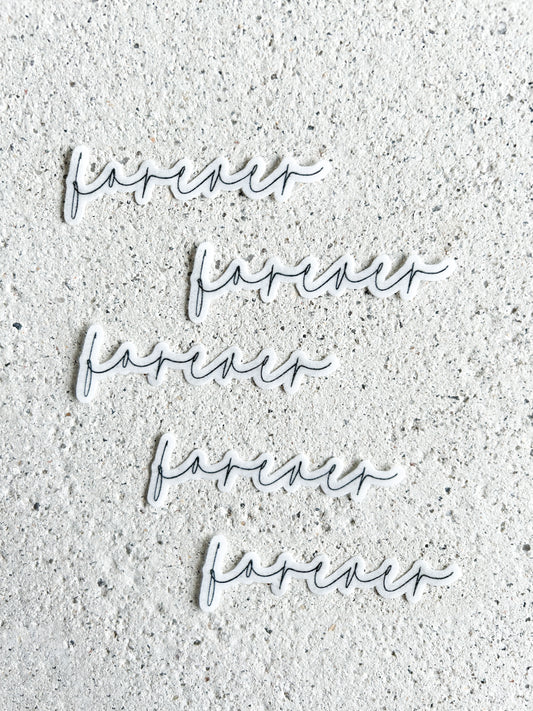 forever
forever
forever
forever
forever